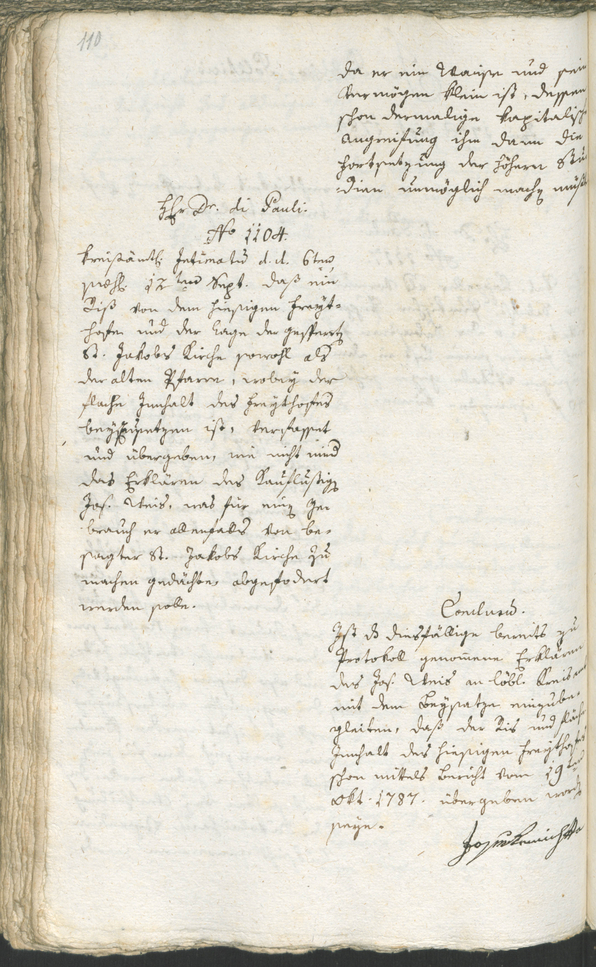 110
da er ein Waise und sein
Vermögen klein ist, dessen
schon dermalige kapitalisch
Angreifung ihm dann die
Fortsetzung der höhern Stu
dien unmöglich machen müßte
Hr Dr. di Pauli.
No 1104.
Kreisämtl. Intimatum d. d. 6ten
præs. 12ten Sept. daß ein
Riß von dem hiesigen Freyt-
hofe und der Lage der gesperrten
St. Jakobs Kirche sowohl als
der alten Pfarre, wobey der
flache Innhalt des Freythofes
beyzusetzen ist, verfasset
und übergeben, wie nicht mind
das Erklären des Kauflustigen
Jos. Weis, was für einen Ge-
brauch er allenfalls von be-
sagter St. Jakobs Kirche zu
machen gedächte, abgefodert
werden solle.
Conclusum.
Ist die diesfällige bereits zu
Protokoll genommene Erklären
des Jos. Weis an löbl. Kreisamt
mit dem Beysatze einzube-
gleiten, daß der Ris und
Innhalt des hiesigen Freythofes
schon mittels Bericht vom 19ten
Okt. 1787. übergeben worden
seye.